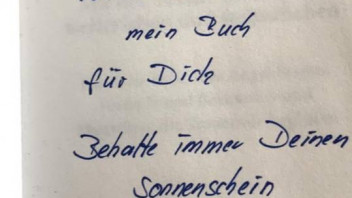 mein Buch
für Dich
Behalte immer Deinen
Sonnenschein